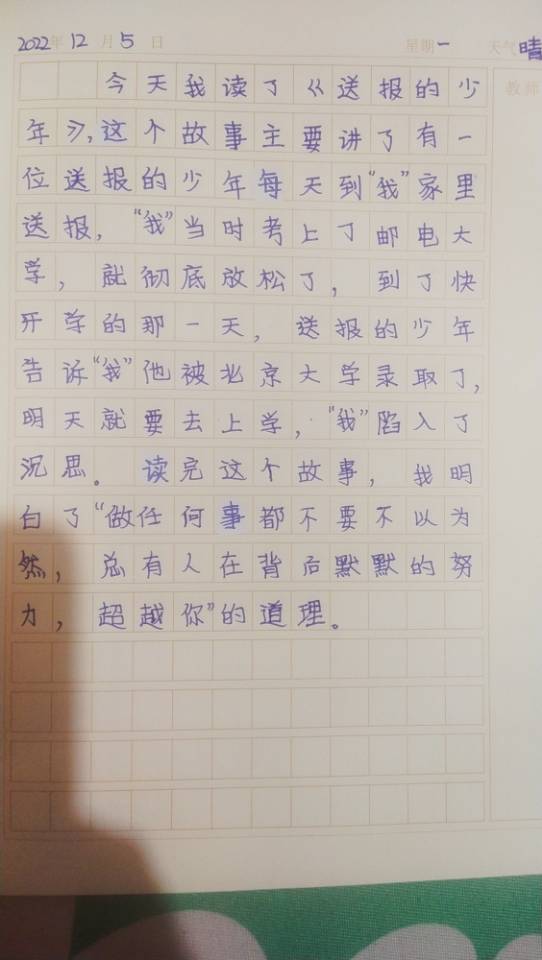 2022年 12月 5日 星期一 天气晴
教师
今天我读了《送报的少
年》，这个故事主要讲了有一
位送报的少年每天到“我”家里
送报，“我”当时考上了邮电大
学，就彻底放松了，到了快
开学的那一天，送报的少年
告诉“我”他被北京大学录取了，
明天就要去上学，“我”陷入了
沉思。读完这个故事，我明
白了“做任何事都不要不以为
然，总有人在背后默默的努
力，超越你”的道理。